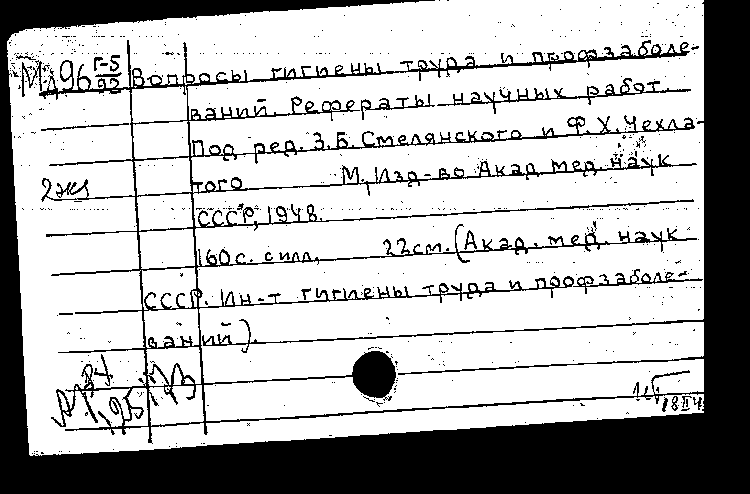 Мл96 Г-5/92 Вопросы гигиены труда и профзаболе-
ваний. Рефераты научных работ.
Под ред. З.Б. Смелянского и Ф.Х. Чехла-
2экз того М., Изд-во Акад. мед. наук
СССР, 1948.
160 с. с илл., 22 см. (Акад. мед. наук
СССР. Ин-т гигиены труда и профзаболе-
ваний).